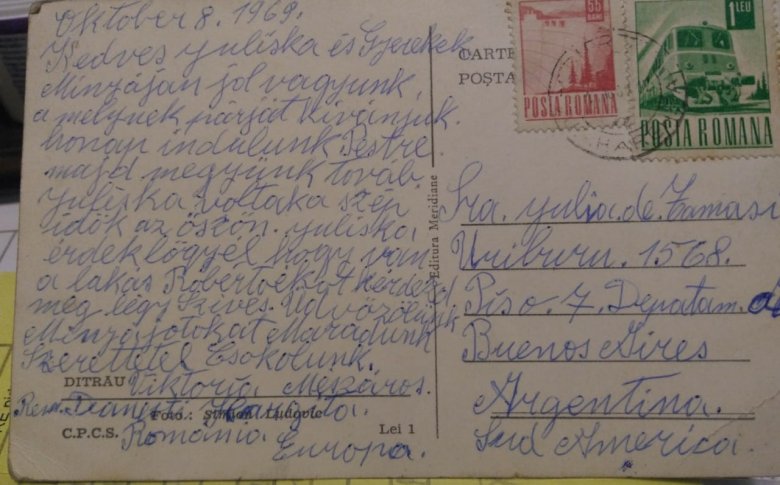 Oktober 8. 1969.
Kedves yuliska és Gyerekek
Minyájan jol vagyunk,
a melynek párját Kivánjuk.
honap indulunk Pestre
majd megyünk továb
yuliska voltaka szép
idök az öszön. yuliska
érdeklögyél hogy van
a lakás Robertoékot kérdezd
meg légy Szives. Üdvözöljük
Minyájotokat Maradunk
Szerettetel Csokolunk.
Viktoria Mészáros.
DITRĂU
Foto.:
România.
C.P.C.S.
Lei 1
Europa.
Editura Meridiane
CARTE
POȘTA
55
BANI
POSTA ROMANA
1 LEU
POSTA ROMANA
Sra. yulia. de. Tamasi
Uriburu. 1568.
Piso. 7. Depatam. d
Buenos Aires
Argentina.
Sud America.